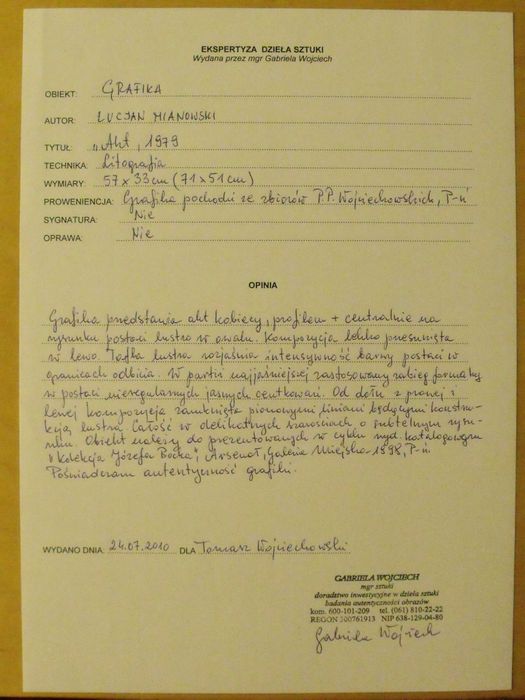 EKSPERTYZA DZIEŁA SZTUKI
Wydana przez mgr Gabriela Wojciech
OBIEKT: GRAFIKA
AUTOR: LUCJAN MIANOWSKI
TYTUŁ: „Akt, 1979
TECHNIKA: Litografia
WYMIARY: 57 x 33 cm (71 x 51 cm)
PROWENIENCJA: Grafika pochodzi ze zbiorów P.P. Wojciechowskich, P-ń
SYGNATURA: Nie
OPRAWA: Nie
OPINIA
Grafika przedstawia akt kobiecy, profilem + centralnie na
rysunku postaci lustro w owalu. Kompozycja lekko przesunięta
w lewo. Tafla lustra rozjaśnia intensywność barwy postaci w
granicach odbicia. W partii najjaśniejszej zastosowany zabieg formalny
w postaci nieregularnych jasnych cętkowań. Od dołu z prawej i
lewej kompozycja zamknięta pionowymi liniami będącymi konstruk-
cją lustra. Całość w delikatnych szarościach o subtelnym rysu-
nku. Obiekt należy do prezentowanych w cyklu wyd. katalogowym
"Kolekcja Józefa Boćka", Arsenał, Galeria Miejska - 1998, P-ń.
Poświadczam autentyczność grafiki.
WYDANO DNIA: 24.07.2010 DLA Tomasz Wojciechowski
GABRIELA WOJCIECH
mgr sztuki
doradztwo inwestycyjne w dzieła sztuki
badania autentyczności obrazów
kom. 600-101-209 tel. (061) 810-22-22
REGON 300761913 NIP 638-129-04-80
Gabriela Wojciech